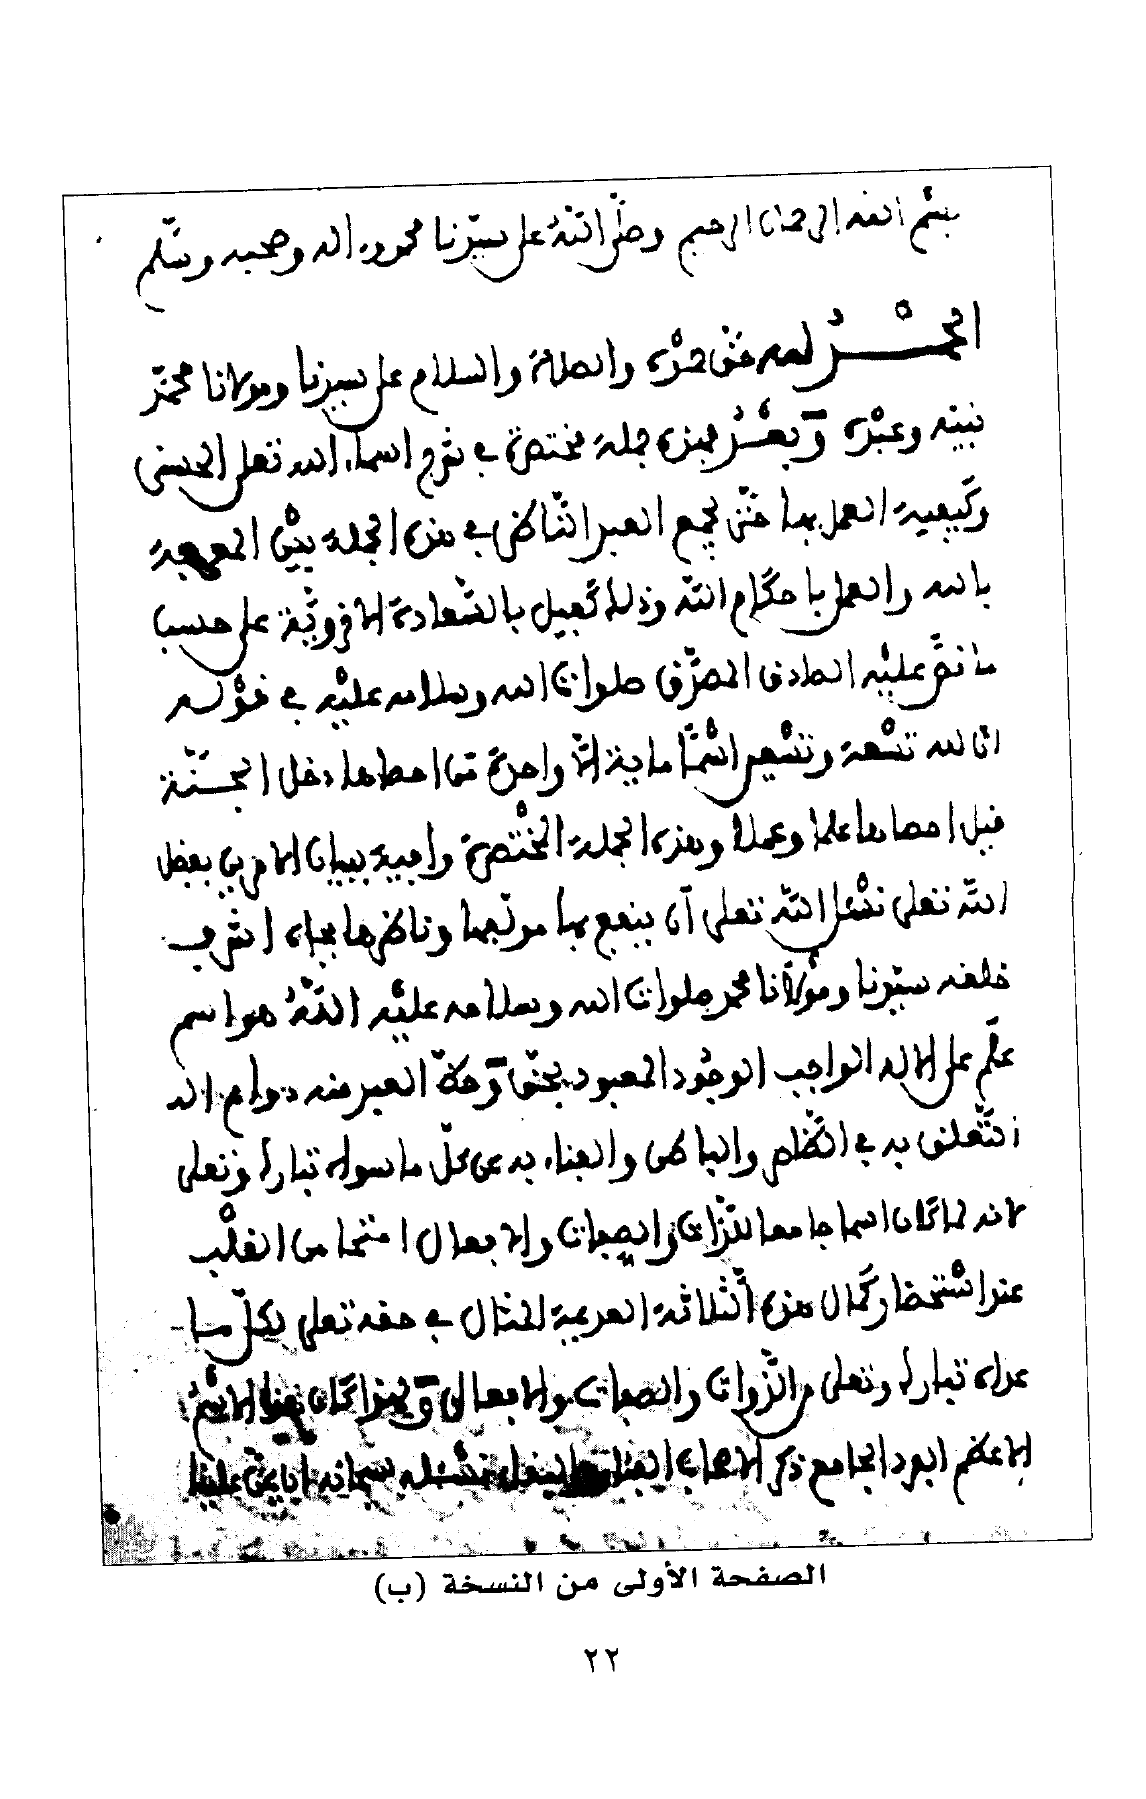 بسم الله الرحمان الرحيم وصلى الله على سيدنا محمد وءاله وصحبه وسلم
الحمد لله حق حمده والصلاة والسلام على سيدنا ومولانا محمد
نبيه وعبده وبعد فهذه جملة مختصرة في شرح اسماء الله تعلى الحسنى
وكيفية العمل بها حتى يجمع العبد الناظر في هذه الجملة بين المعرفة
بالله والعمل باحكام الله وذلك كفيل بالسعادة الاخروية على حسب
ما نص عليه الصادق المصدق صلوات الله وسلامه عليه في قوله
ان لله تسعة وتسعين اسما ماية الا واحدة من احصاها دخل الجنة
قيل احصاها علما وعملا وهذه الجملة المختصرة وافية ببيان الامرين بفضل
الله تعلى نسئل الله تعلى أن ينفع بها مولفها وناظرها بجاه اشرف
خلقه سيدنا ومولانا محمد صلوات الله وسلامه عليه الله هو اسم
علم على الاله الواجب الوجود المعبود بحق وحظ العبد منه دوام الـ
التعلق به في الظاهر والباطن والفناء به عن كل ما سواه تبارك وتعلى
لانه لما كان اسما جامعا للذات والصفات والافعال امتحا من القلب
عند استحضار كمال هذه الثلاثة العديمة المثال في حقه تعلى لكل ما
عداه تبارك وتعلى من الذوات والصفات والافعال ولهذا كان هذا الاسم
الاعظم الفرد الجامع ذكر الاصحاب الفناء نسئله سبحانه ان يمن علينا
الصفحة الأولى من النسخة (ب)
٢٢